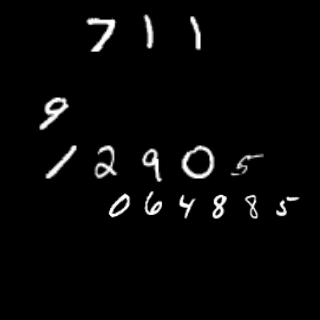 711
9
12905
064885